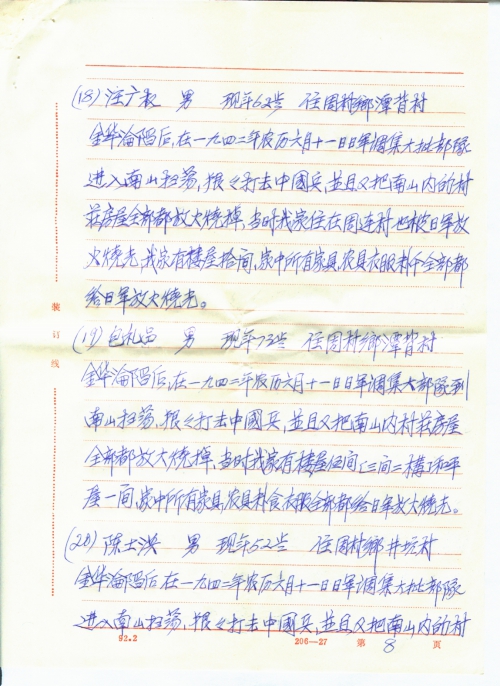 (18) 汪广 男 现年62岁 住周村鄉潭背村
金华淪陷后,在一九四二年农历六月十一日日軍调集大批部隊
进入南山扫荡,狠々打击中國兵,並且又把南山内的村
莊房屋全部都放火燒掉,当时我家住在周连村也被日軍放
火燒光,我家有樓屋拾间,家中所有家具,农具衣服料个全部都
给日軍放火燒光。
装订线
(19) 包礼品 男 现年73岁 住周村鄉潭背村
金华淪陷后,在一九四二年农历六月十一日日軍调集大部隊到
南山扫荡,狠々打击中國兵,並且又把南山内村莊房屋
全部都放火燒掉,当时我家有樓屋伍间(三间二構)和平
屋一间,家中所有家具,农具料食衣服全部都给日軍放火燒光。
(20) 陈士洪 男 现年52岁 住周村鄉井坑村
金华淪陷后,在一九四二年农历六月十一日日軍调集大批部隊
进入南山扫荡,狠々打击中國兵,並且又把南山内的村
92.2 206—27 第 8 页